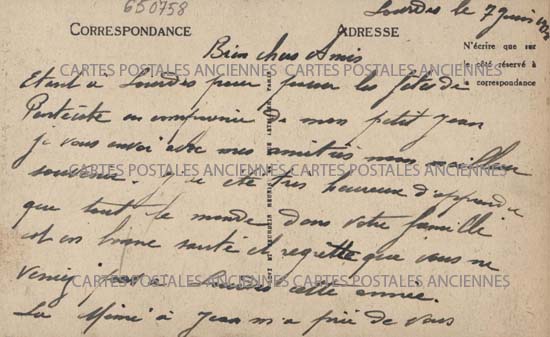 650758
Lourdes le 7 juin
CORRESPONDANCE
ADRESSE
Bien chers Amis
N'écrire que sur
le côté réservé à
la correspondance
CARTES POSTALES ANCIENNES CARTES POSTALES ANCIENNES
Etant à Lourdes pour passer les fêtes de
Pentecôte en compagnie de mon petit Jean
je vous envoi avec mes amitiés mon meilleur
CARTES POSTALES ANCIENNES CARTES POSTALES ANCIENNES
souvenir. J'ai été très heureux d'apprendre
que tout le monde dans votre famille
est en bonne santé et regrette que vous ne
veniez pas à Lourdes cette année.
CARTES POSTALES ANCIENNES CARTES POSTALES ANCIENNES
La Mémé à Jean m'a prié de vous